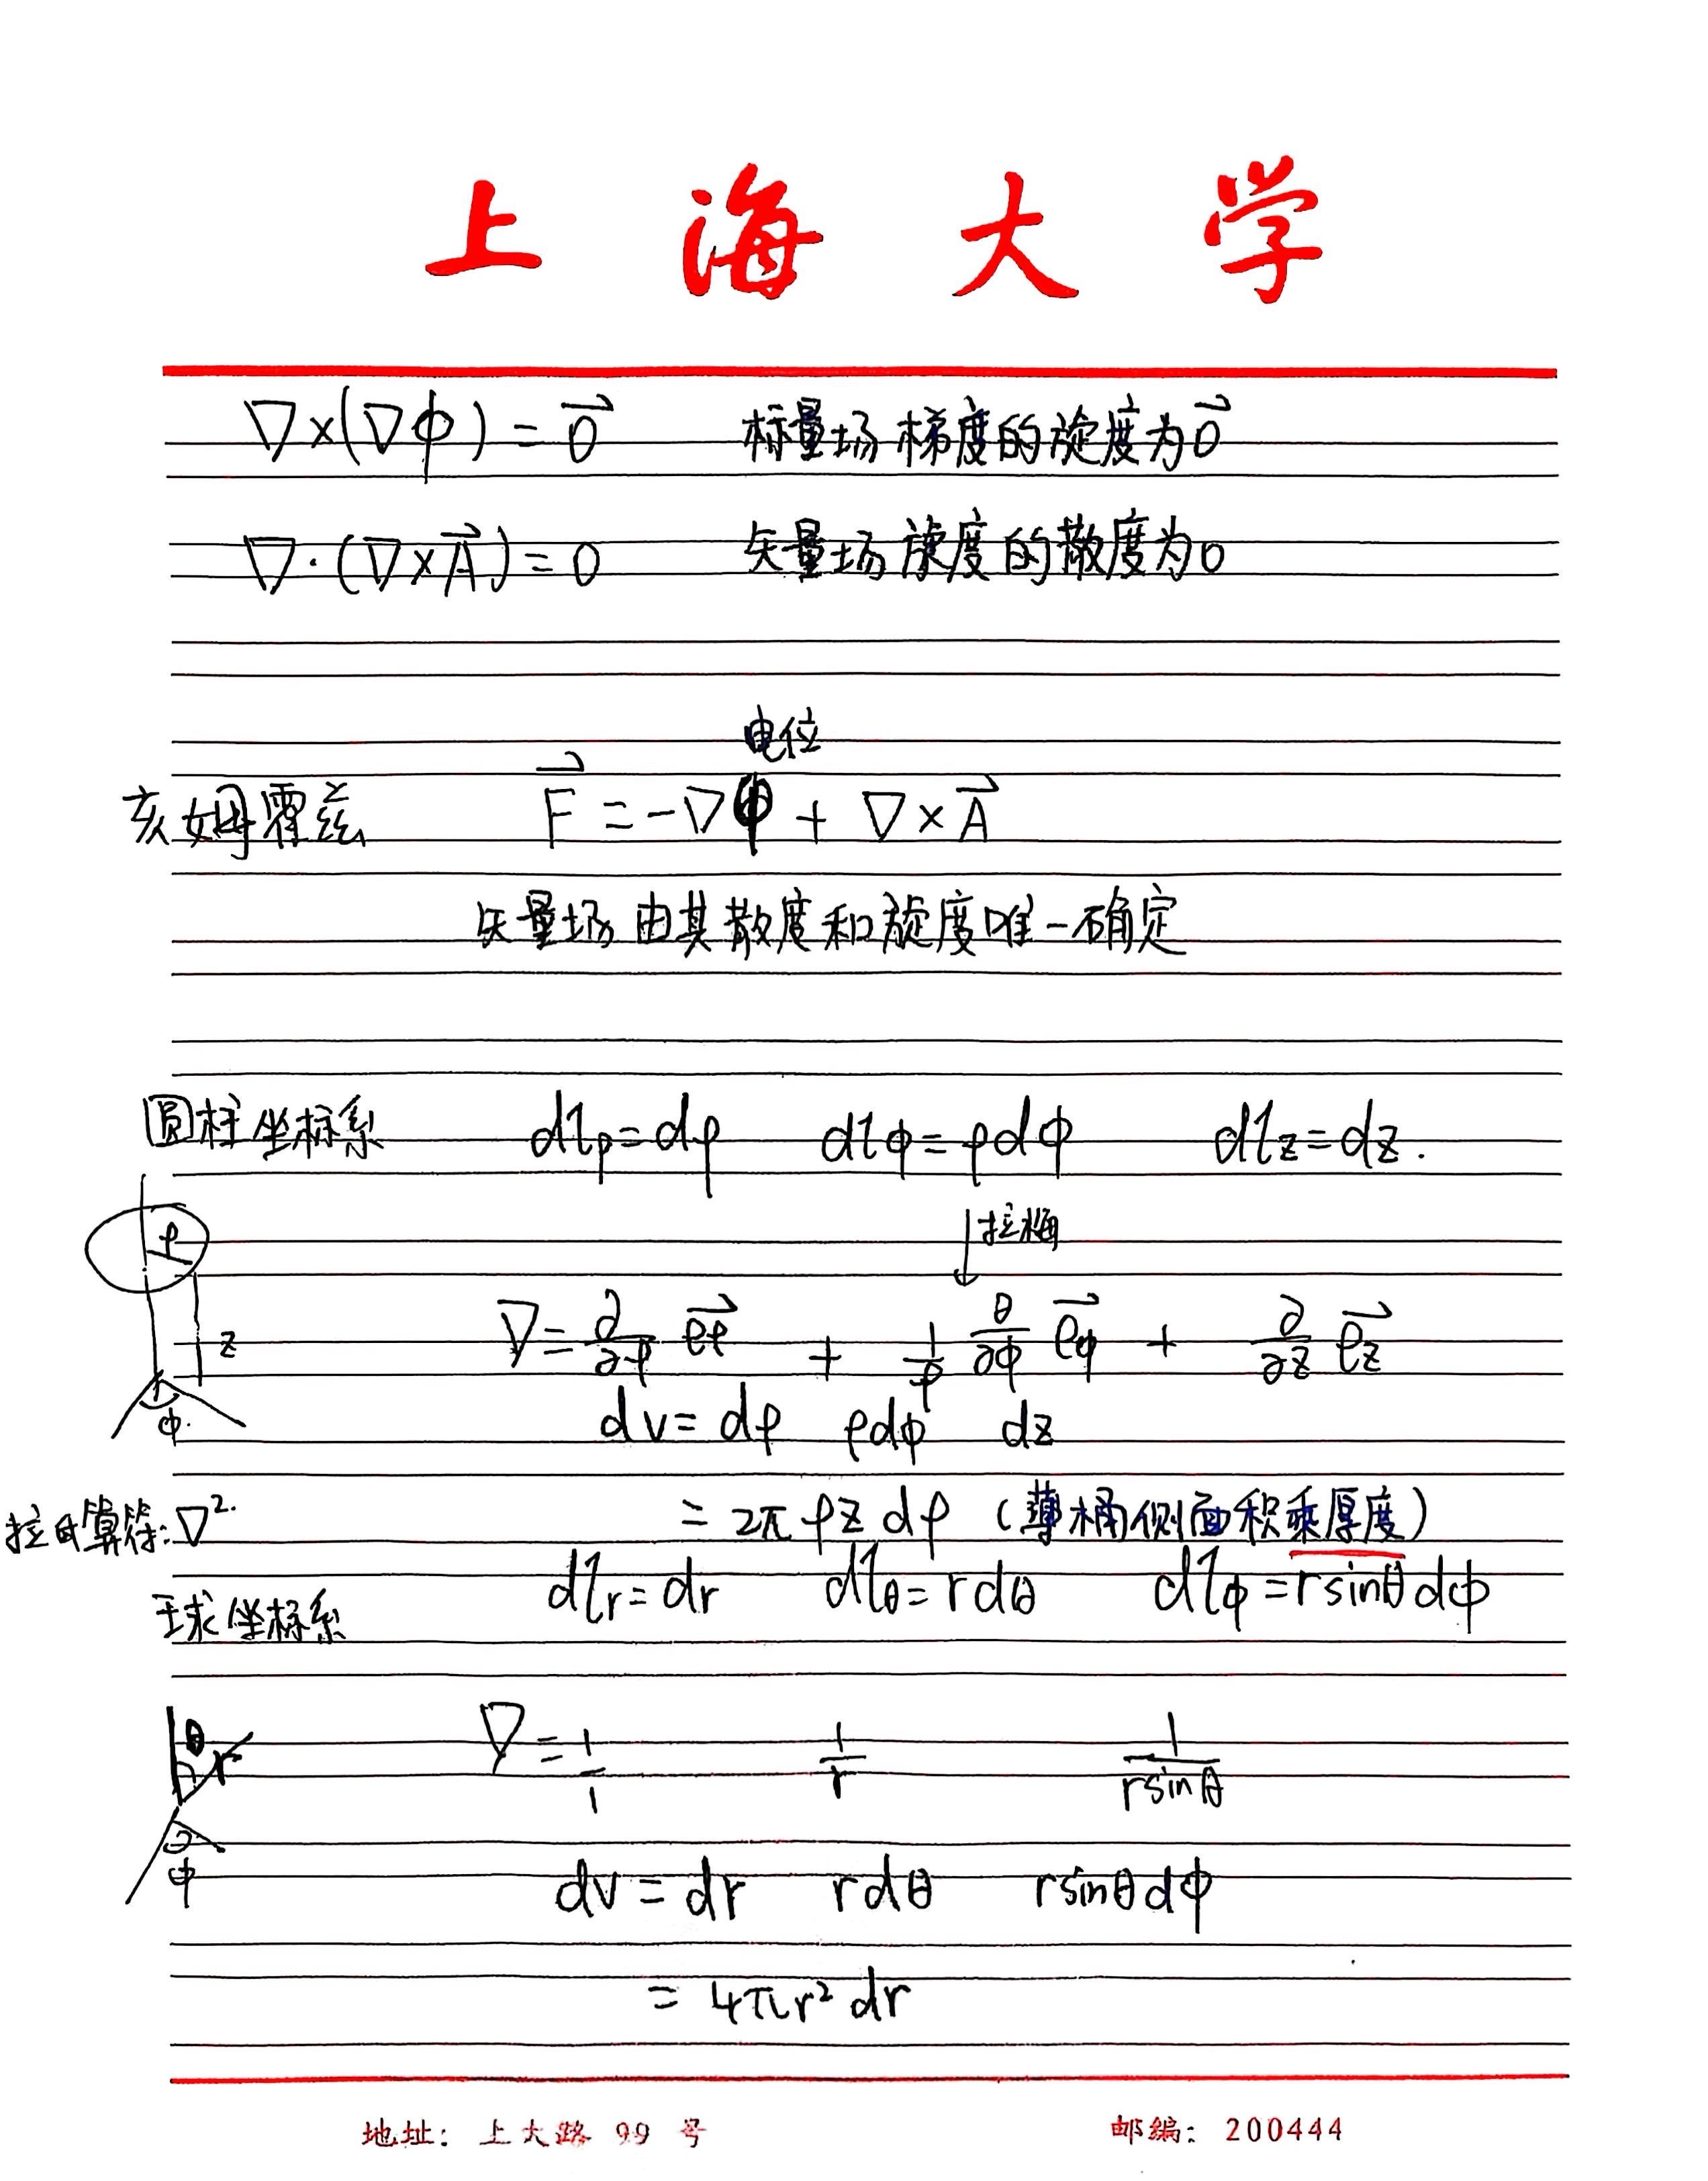 上海大学
∇×(∇φ) = 0⃗ 标量场梯度的旋度为0⃗
∇·(∇×A⃗) = 0 矢量场旋度的散度为0
电位
亥姆霍兹 F⃗ = -∇φ + ∇×A⃗
矢量场由其散度和旋度唯一确定
圆柱坐标系 dlρ = dρ dlφ = ρdφ dlz = dz.
ρ
z
φ.
↓拉梅
∇ = ∂/∂ρ e⃗ρ + 1/ρ ∂/∂φ e⃗φ + ∂/∂z e⃗z
dv = dρ ρdφ dz
拉氏算符: ∇². = 2πρz dρ (薄桶侧面积乘厚度)
球坐标系 dlr = dr dlθ = rdθ dlφ = rsinθdφ
θ r
φ
∇ = 1/1 1/r 1/rsinθ
dv = dr rdθ rsinθdφ
= 4πr² dr
地址: 上大路 99 号 邮编: 200444